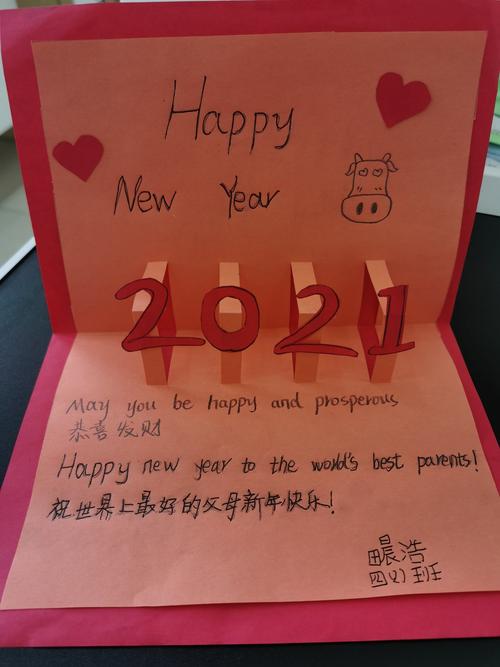 Happy
New Year
2021
May you be happy and prosperous
恭喜发财
Happy new year to the world's best parents!
祝世界上最好的父母新年快乐!
田晨浩